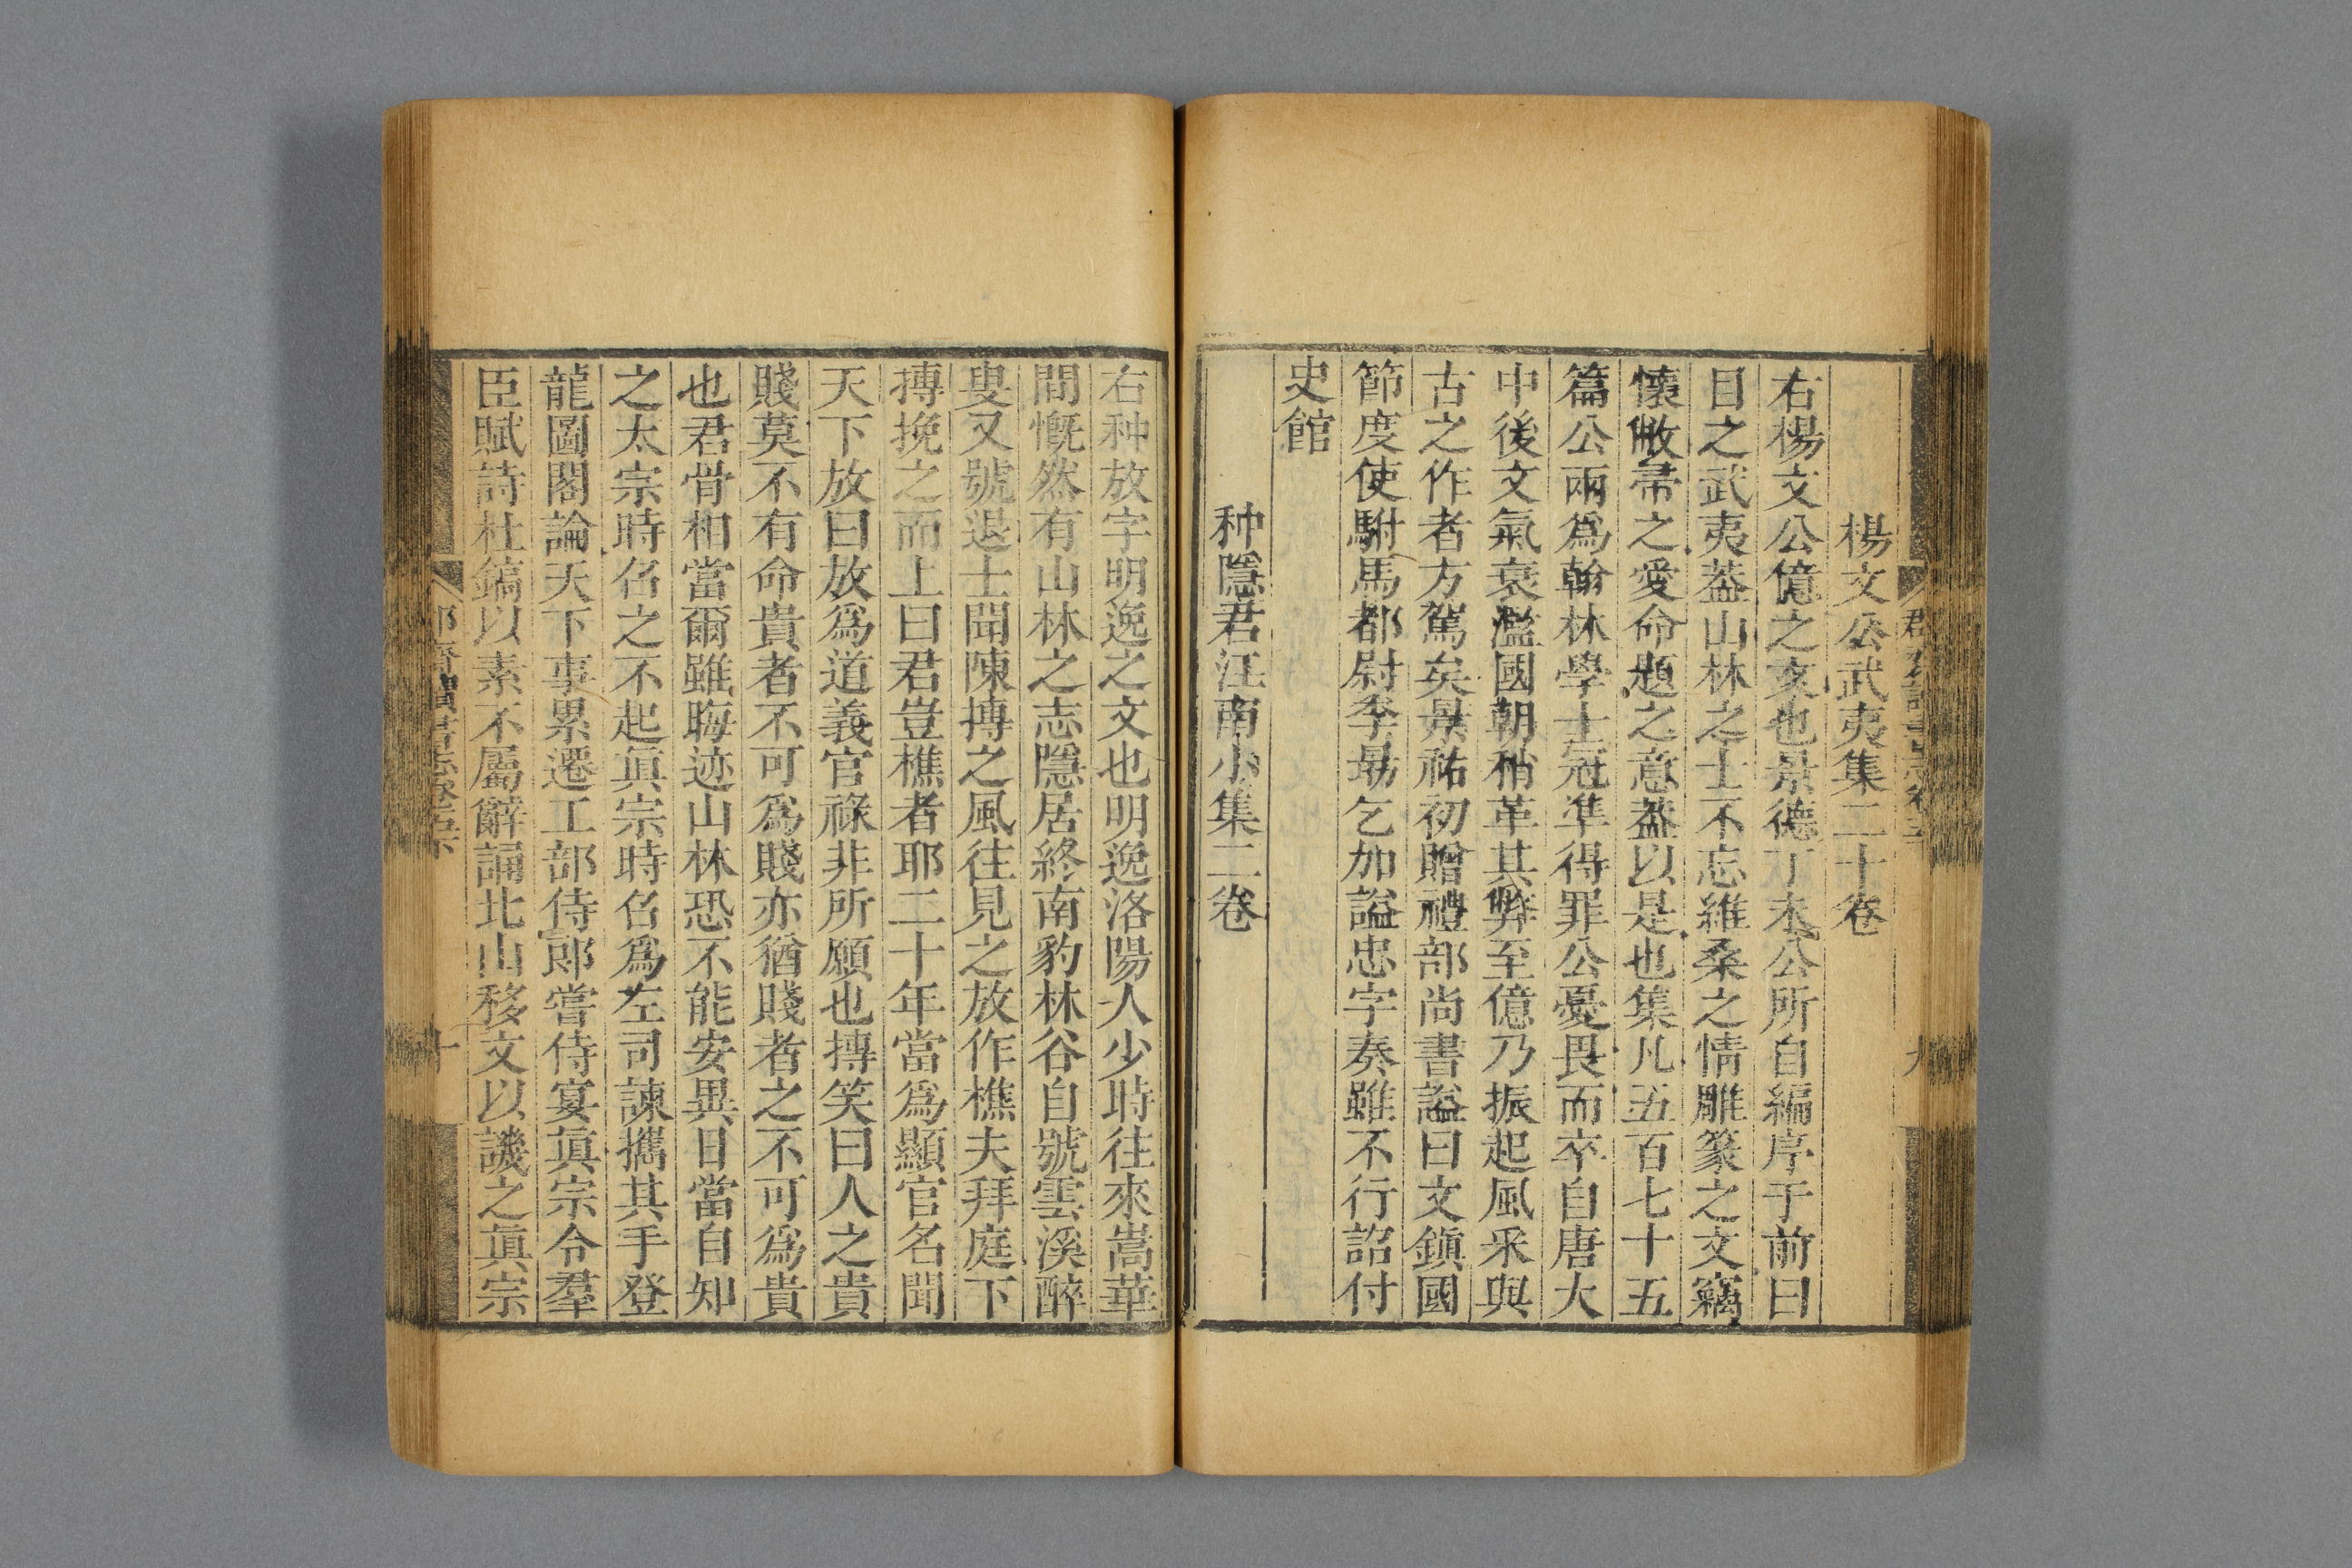 楊文公武夷集二十卷
右楊文公億之文也景德丁未公所自編序于前曰
目之武夷葢山林之士不忘維桑之情雕篆之文竊
懷敝帚之愛命題之意葢以是也集凡五百七十五
篇公兩爲翰林學士冠準得罪公憂畏而卒自唐大
中後文氣衰濫國朝稍革其弊至億乃振起風采與
古之作者方駕矣景祐初贈禮部尚書謚曰文鎭國
節度使駙馬都尉李朂乞加謚忠字奏雖不行詔付
史館
种隱君江南小集二卷
右种放字明逸之文也明逸洛陽人少時往來嵩華
間慨然有山林之志隱居終南豹林谷自號雲溪醉
叟又號退士聞陳摶之風往見之放作樵夫拜庭下
摶挽之而上曰君豈樵者耶二十年當爲顯官名聞
天下放曰放爲道義官祿非所願也摶笑曰人之貴
賤莫不有命貴者不可爲賤亦猶賤者之不可爲貴
也君骨相當爾雖晦迹山林恐不能安異日當自知
之太宗時召之不起眞宗時召爲左司諫攜其手登
龍圖閣論天下事累遷工部侍郎嘗侍宴眞宗令羣
臣賦詩杜鎬以素不屬辭誦北山移文以譏之眞宗